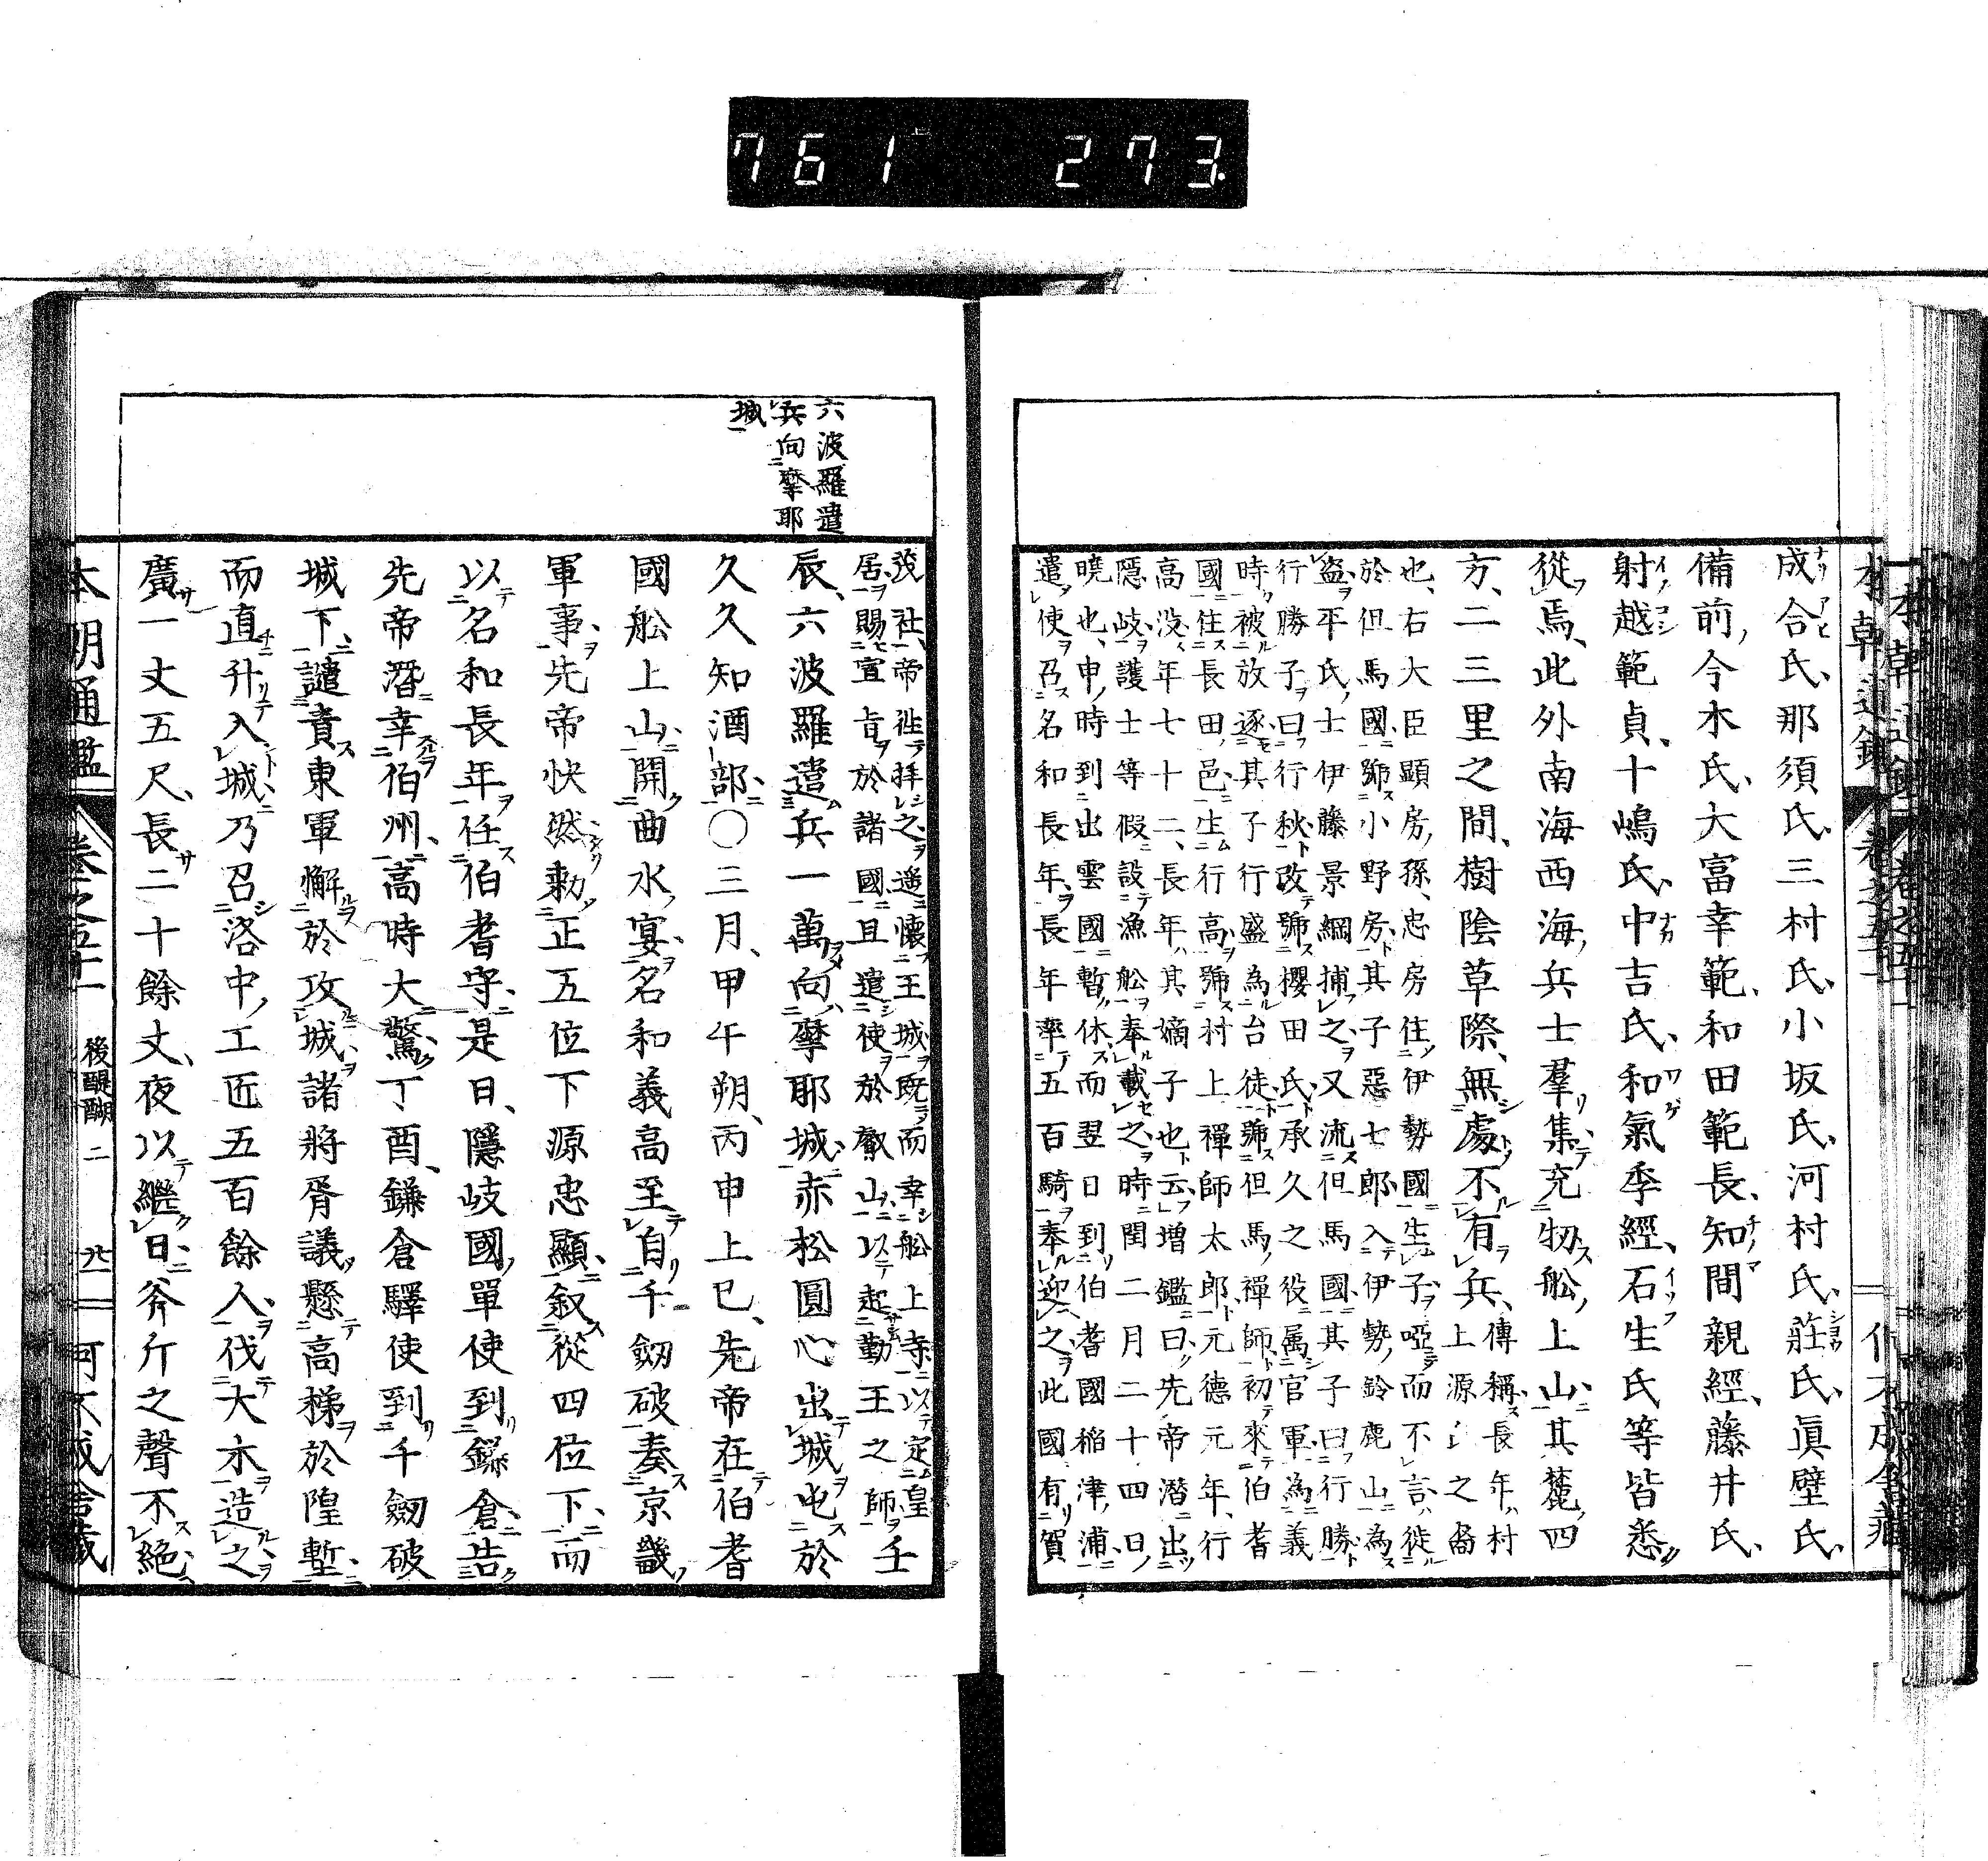 761 273
成合氏、那須氏、三村氏、小坂氏、河村氏、莊氏、眞壁氏、
備前、今木氏、大富幸範、和田範長、知間親經、藤井氏、
射越範貞、十嶋氏、中吉氏、和氣季經、石生氏等皆悉
從焉、此外南海西海兵士羣集充牣舩上山、其麓四
方、二三里之間、樹陰草際、無處不有兵、
傳稱長年村
上源氏之裔
也、右大臣顯房孫、忠房住伊勢國生子啞而不言徙
於但馬國號小野房、其子惡七郎入伊勢鈴鹿山為
盗平氏士伊藤景綱捕之又流但馬國其子曰行勝
行勝子曰行秋、改號櫻田氏、承久之役属官軍為義
時被放逐其子行盛為台徒號但馬禪師初來伯耆
國住長田邑生行高號村上禪師太郎元德元年、行
高没年七十二、長年其嫡子也云增鑑曰、先帝潛出
隱岐護士等假設漁舩奉載之時閏二月二十四日、
曉也、申時到出雲國暫休而翌日到伯耆國稲津浦
遣使召名和長年、長年率五百騎奉迎之此國有賀
茂社、帝徃拝之遥懷王城既而幸舩上寺以定皇
居、賜宣旨於諸國且遣使於叡山以起勤王之師
壬
六波羅遣
兵向摩耶
城
辰、六波羅遣兵一萬向摩耶城赤松圓心出城屯於
久久知酒部、〇三月、甲午朔、丙申上巳、先帝在伯耆
國舩上山、開曲水宴、名和義高至自千劔破奏京畿
軍事、先帝快然勅正五位下源忠顯敘從四位下而
以名和長年任伯耆守、是日、隱岐國單使到鎌倉告
先帝潛幸伯州、高時大驚、丁酉、鎌倉驛使到千劔破
城下、譴責東軍懈於攻城、諸將胥議懸高梯於隍塹
而直升入城、乃召洛中工匠五百餘人、伐大木造之
廣一丈五尺、長二十餘丈、夜以繼日、斧斤之聲不絶、
本朝通鑑 卷之五十一 後醍醐二